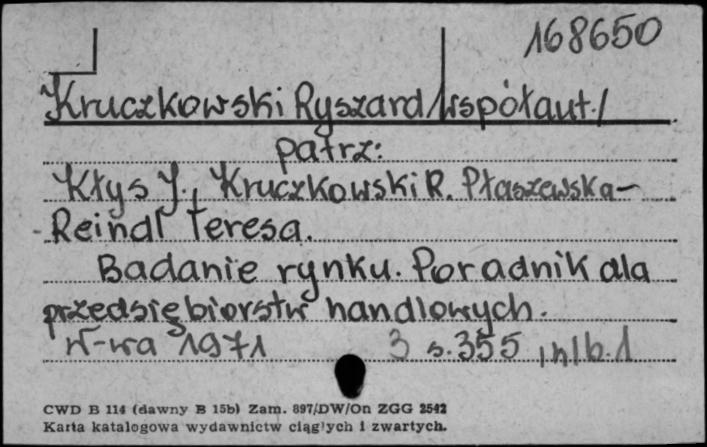 168650
Kruczkowski Ryszard /współaut./
patrz:
Kłys J., Kruczkowski R. Płaszewska-
Reindl Teresa.
Badanie rynku. Poradnik dla
przedsiębiorstw handlowych.
W-wa 1971 3 s. 355, nlb. 1
CWD B 114 (dawny B 15b) Zam. 897/DW/On ZGG 2542
Karta katalogowa wydawnictw ciągłych i zwartych.